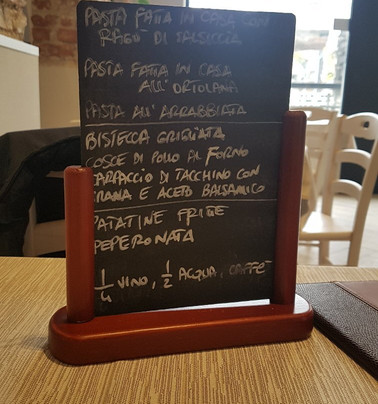 PASTA FATTA IN CASA CON
RAGÙ DI SALSICCIA
PASTA FATTA IN CASA
ALL'ORTOLANA
PASTA ALL'ARRABBIATA
BISTECCA GRIGLIATA
COSCE DI POLLO AL FORNO
CARPACCIO DI TACCHINO CON
GRANA E ACETO BALSAMICO
PATATINE FRITTE
PEPERONATA
1/4 VINO, 1/2 ACQUA, CAFFÈ